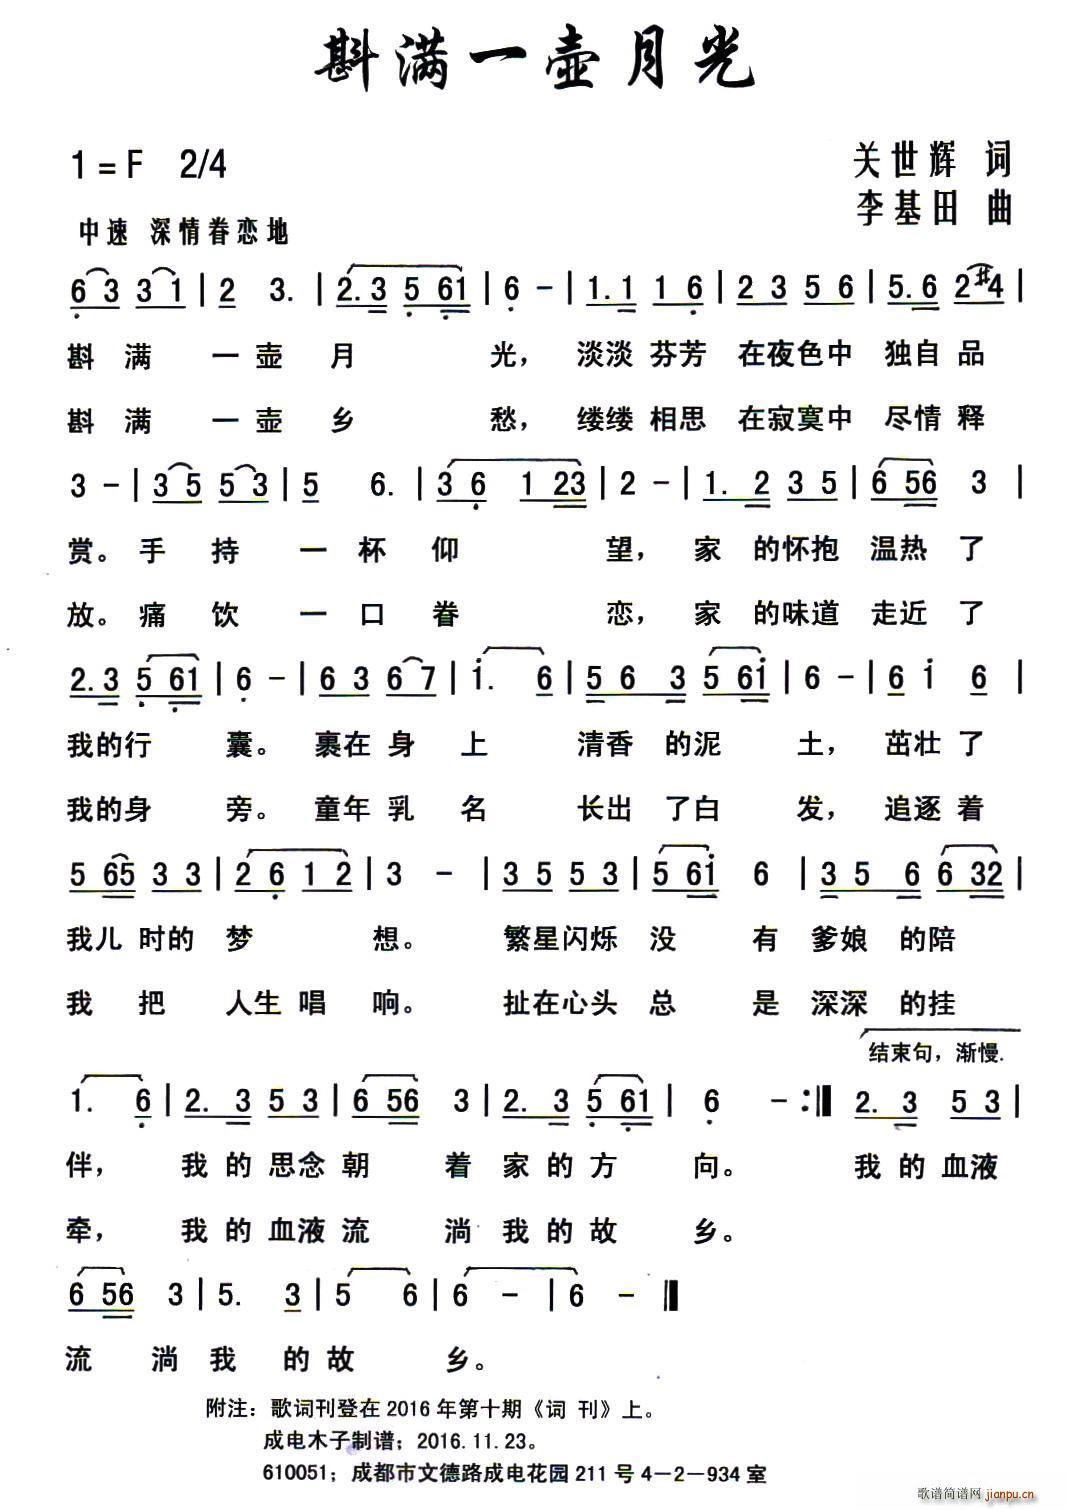 斟满一壶月光
1=F 2/4
关世辉 词
李基田 曲
中速 深情眷恋地
6 3 3 1 | 2 3. | 2.3 5 61 | 6 - | 1.1 1 6 | 2 3 5 6 | 5.6 2#4 |
斟 满 一 壶 月 光， 淡淡 芬芳 在夜色中 独自品
斟 满 一 壶 乡 愁， 缕缕 相思 在寂寞中 尽情释
3 - | 3 5 5 3 | 5 6. | 3 6 1 23 | 2 - | 1. 2 3 5 | 6 56 3 |
赏。手 持 一 杯 仰 望， 家 的怀抱 温热 了
放。痛 饮 一 口 眷 恋， 家 的味道 走近 了
2.3 5 61 | 6 - | 6 3 6 7 | 1. 6 | 5 6 3 5 61 | 6 - | 6 1 6 |
我的行 囊。裹在 身 上 清香 的泥 土，茁壮 了
我的身 旁。童年 乳 名 长出 了白 发，追逐 着
5 65 3 3 | 2 6 1 2 | 3 - | 3 5 5 3 | 5 61 6 | 3 5 6 6 32 |
我儿 时的 梦 想。 繁星闪烁 没 有 爹娘 的陪
我 把 人生 唱 响。 扯在心头 总 是 深深 的挂
结束句，渐慢.
1. 6 | 2. 3 5 3 | 6 56 3 | 2. 3 5 61 | 6 - :‖ 2. 3 5 3 |
伴， 我 的 思念 朝 着 家 的 方 向。 我 的 血液
牵， 我 的 血液 流 淌 我 的 故 乡。
6 56 3 | 5. 3 | 5 6 | 6 - | 6 - ‖
流 淌 我 的 故 乡。
附注：歌词刊登在2016年第十期《词 刊》上。
成电木子制谱；2016.11.23。
610051；成都市文德路成电花园211号4－2－934室
歌谱简谱网
jianpu.cn